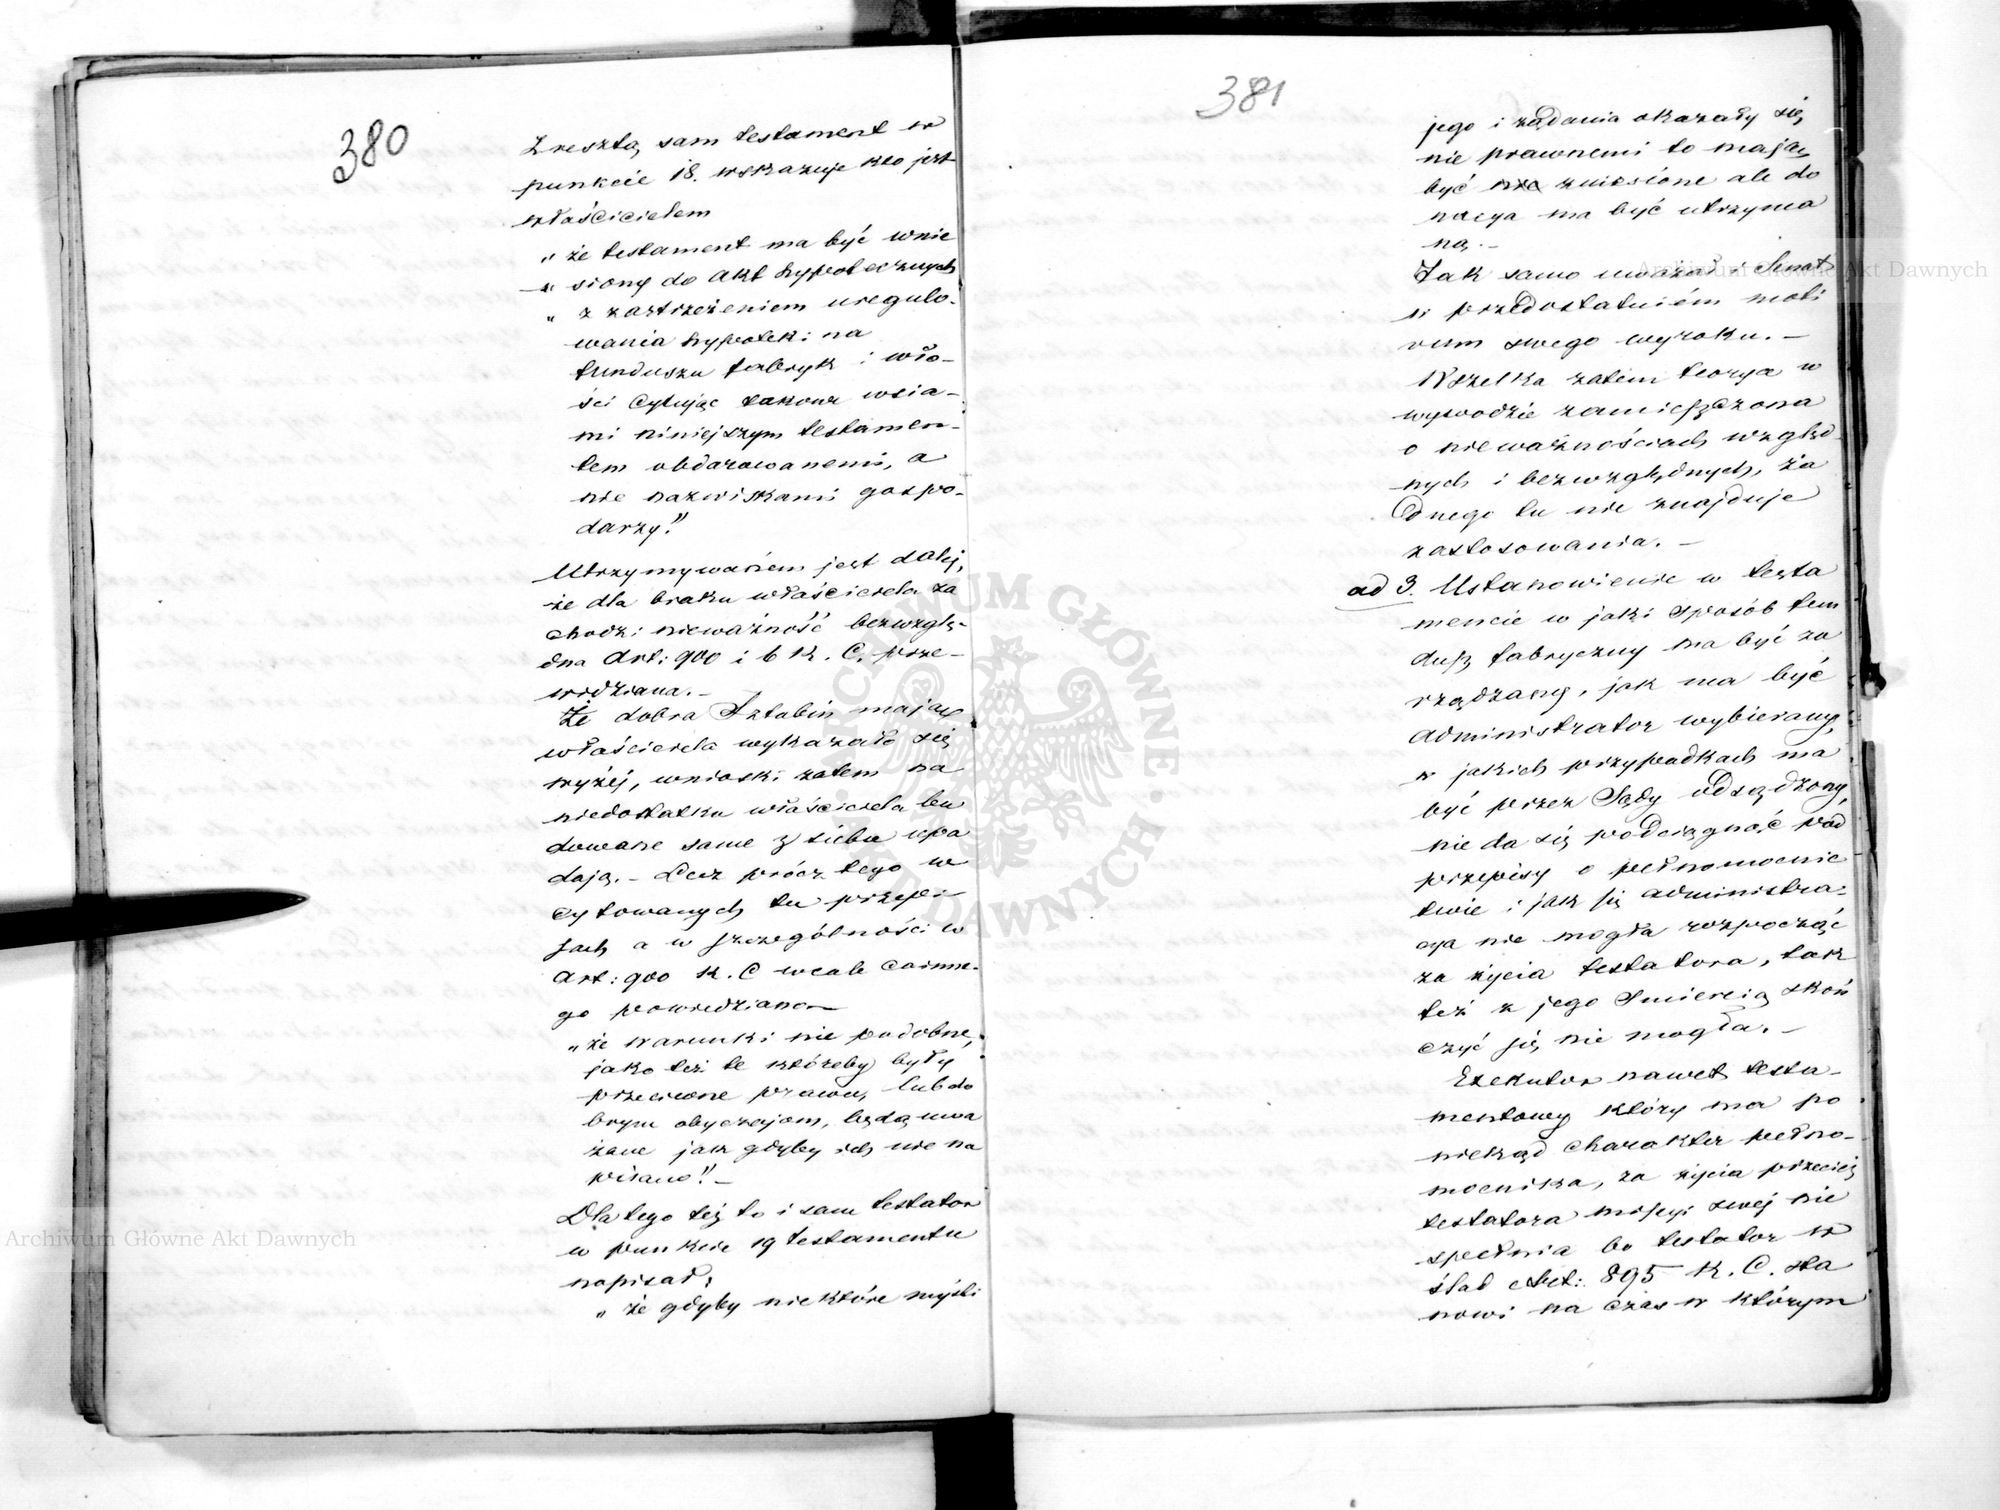 380
Zresztą sam testament w
punkcie 18. wskazuje kto jest
właścicielem
„ że testament ma być wnie
„ siony do akt hypotecznych
„ z zastrzeżeniem uregulo-
wania hypoteki na
funduszu fabryk i wło-
ści cytując takowe wsia-
mi niniejszym testamen-
tem obdarowanemi, a
nie nazwiskami gospo-
darzy."
Utrzymywaniem jest dalej,
że dla braku właściciela za
chodzi nieważność bezwzglę-
dna Art: 900 i 6 K. C. prze-
widziana. –
Że dobra Sztabin mają
właściciela wykazało się
wyżej, wnioski zatem na
niedostatku właściciela bu
dowane same z siebie upa
dają. – Lecz prócz tego w
cytowanych tu przepi-
sach a w szczególności w
Art: 900 K. C wcale co inne-
go powiedziano –
„ że warunki nie podobne,
jako też te któreby były
przeciwne prawu, lub do
brym obyczajom, będą uwa
żane jak gdyby ich nie na
pisano". –
Dla tego też to i sam testator
w punkcie 19 testamentu
napisał:
„ że gdyby niektóre myśli
381
jego i żądania okazały się
nie prawnemi to mają
być zniesione ale do
nacya ma być utrzyma
ną. –
Tak samo uważał i Senat
w przedostatniém moti
vum swego wyroku. –
Wszelka zatem teorya w
wywodzie zamieszczona
o nieważnościach względ-
nych i bezwzględnych, ża
dnego tu nie znajduje
zastosowania. –
ad 3. Ustanowienie w testa
mencie w jaki sposób fun
dusz fabryczny ma być za
rządzany, jak ma być
administrator wybierany,
w jakich przypadkach ma
być przez Sądy odsądzony,
nie da się podciągnąć pod
przepisy o pełnomocnic
twie i jak się administra-
cya nie mogła rozpocząć
za życia testatora, tak
też z jego śmiercią skoń
czyć się nie mogła. –
Exekutor nawet testa-
mentowy który ma po
niekąd charakter pełno-
mocnika, za życia przecież
testatora missyi swej nie
spełnia bo testator w
ślad Art: 895 K. C. sta
nowi na czas w którym
Archiwum Główne Akt Dawnych
Archiwum Główne Akt Dawnych
ARCHIWUM GŁÓWNE AKT DAWNYCH